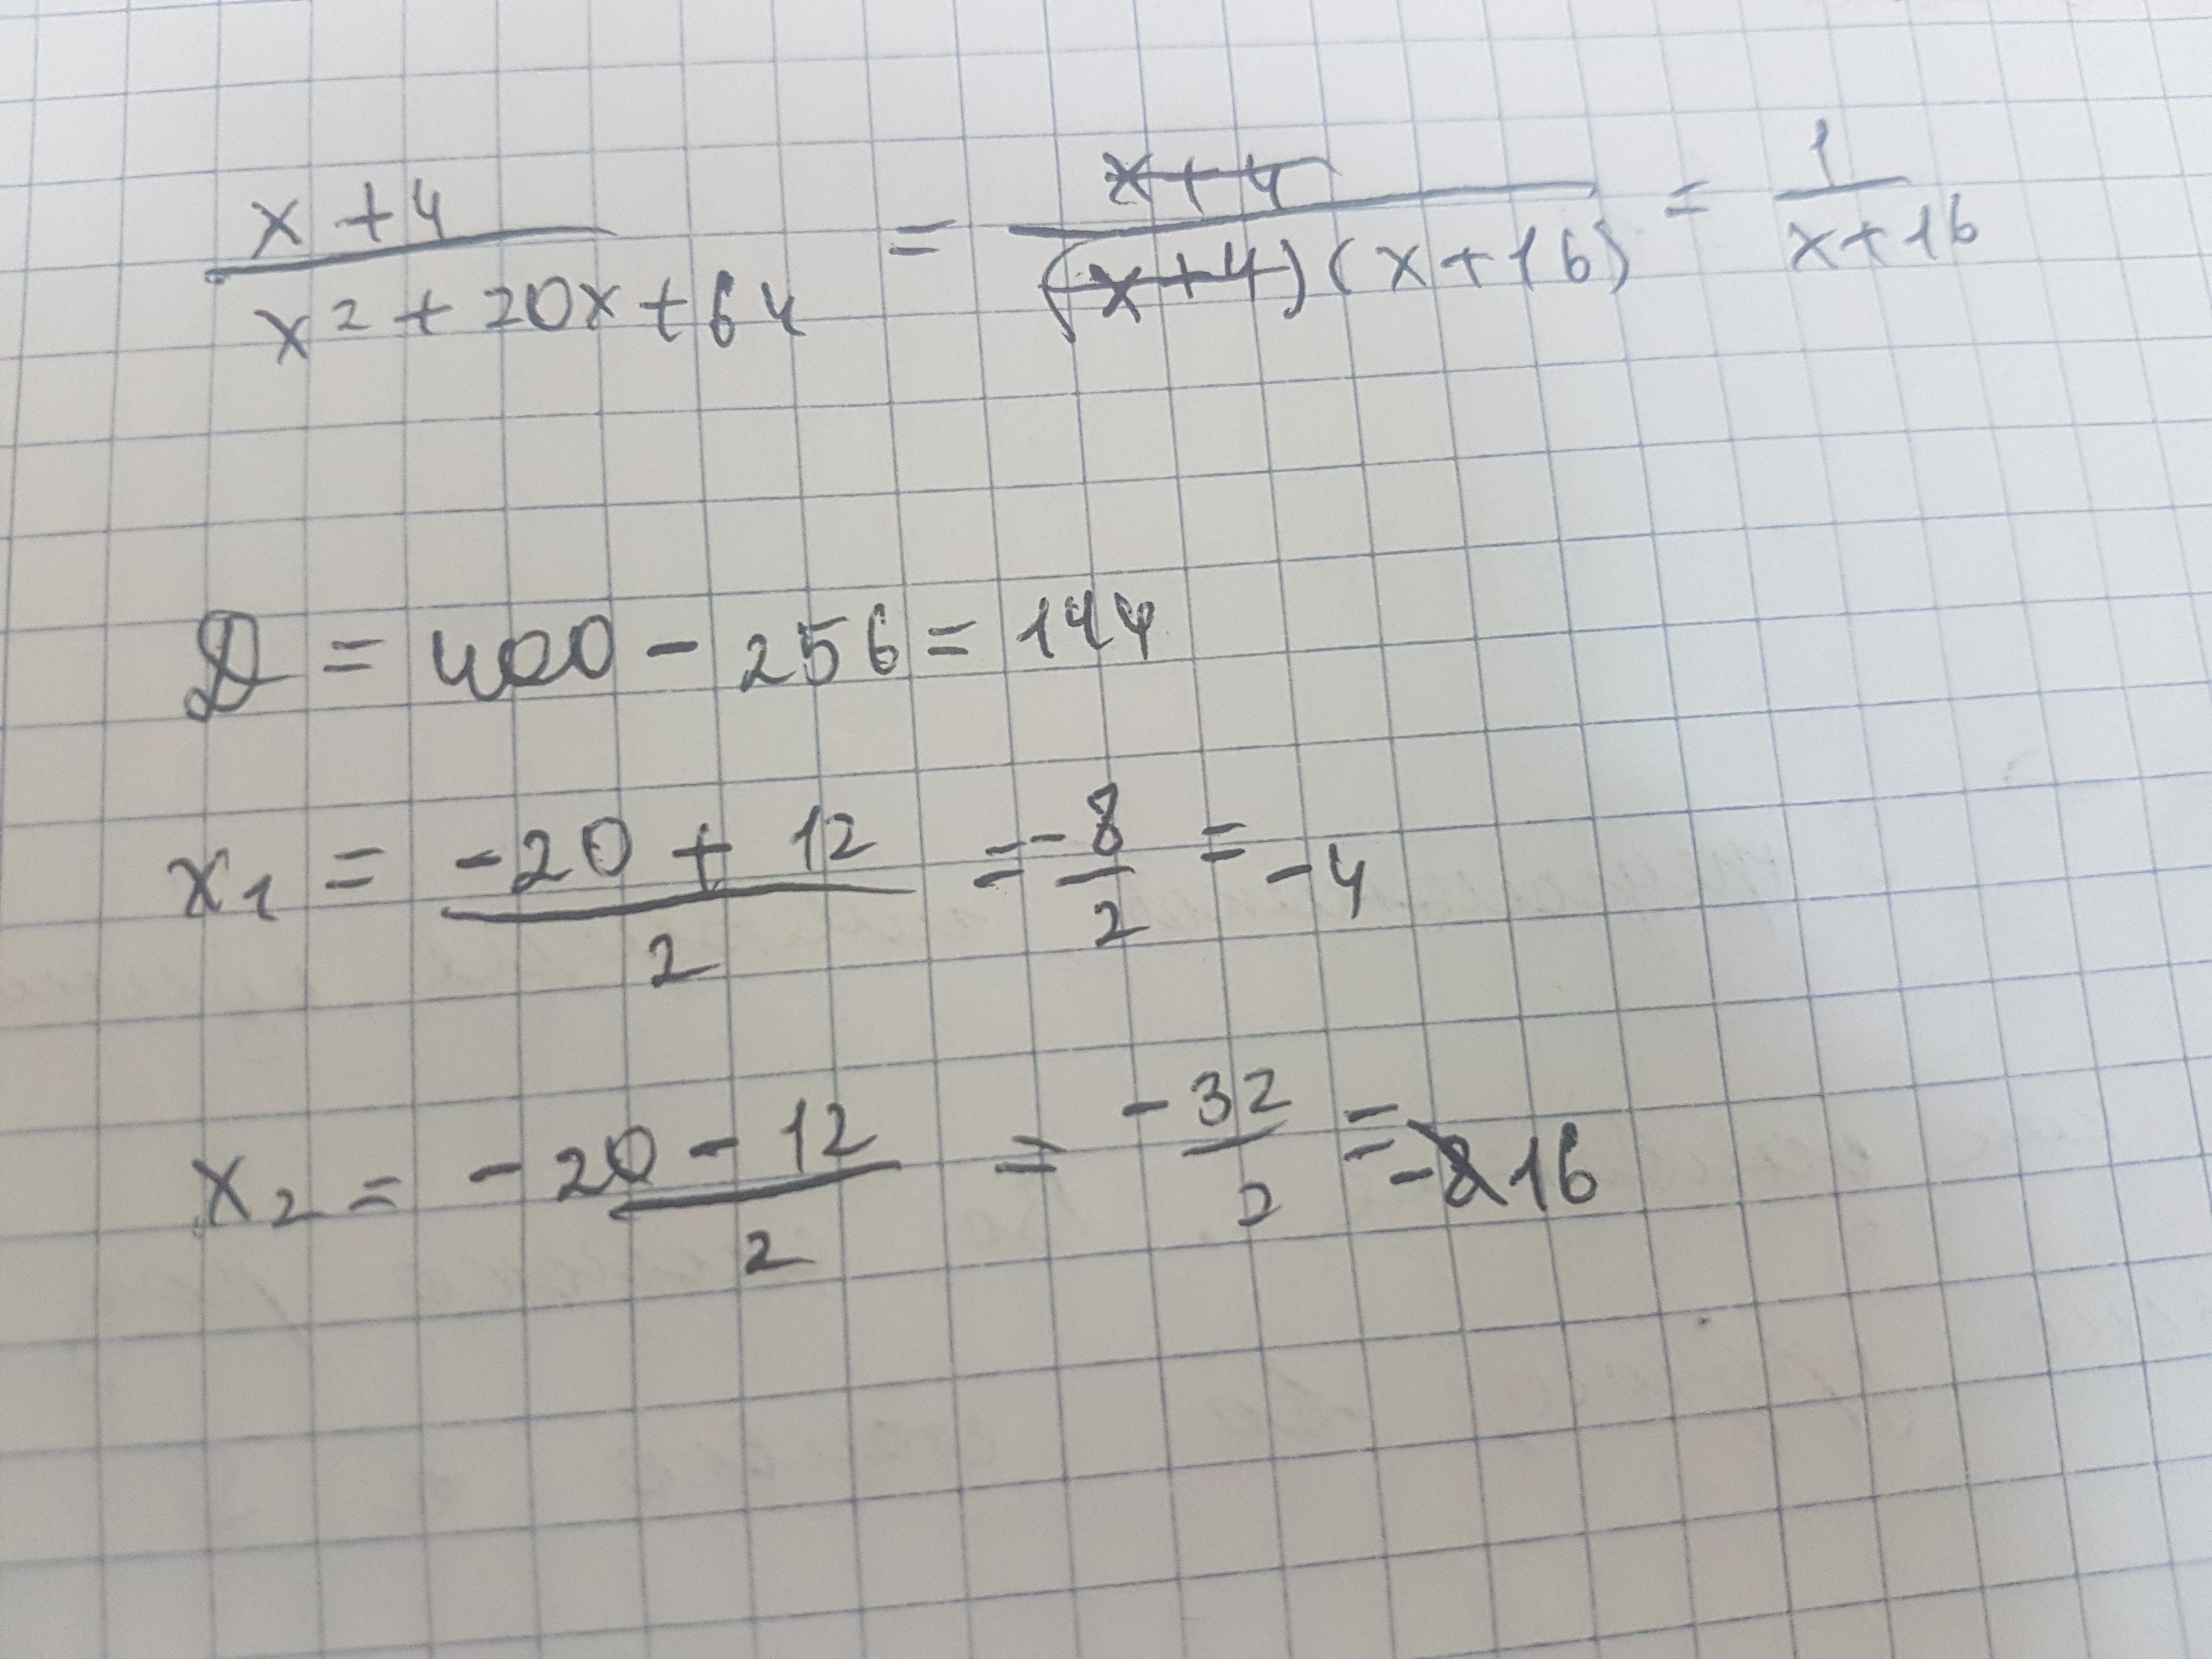 (x+4)/(x²+20x+64) = (x+4)/((x+4)(x+16)) = 1/(x+16)
D = 400 - 256 = 144
x₁ = (-20 + 12)/2 = -8/2 = -4
x₂ = (-20 - 12)/2 = -32/2 = -16